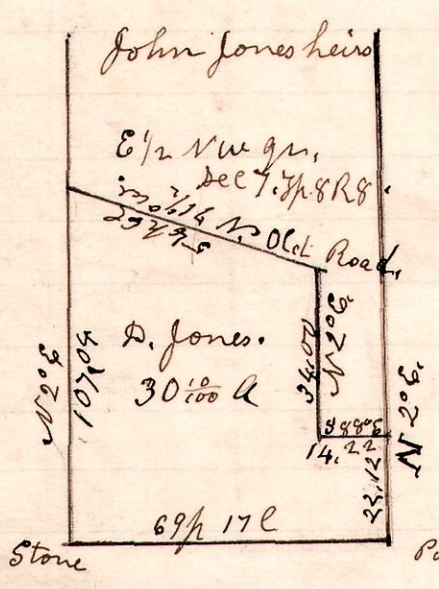 John Jones heirs
E 1/2 NW qr.
Sec 7. Tp. 8 R 8.
Old Road.
N 2° E
107,04
D. Jones.
30 10/100 A
34,00
N 2° E.
S 88° E
14.22
22.12
N 2° E.
69p 17 l
Stone